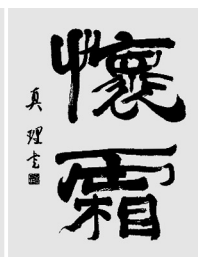 懷霜
真理书